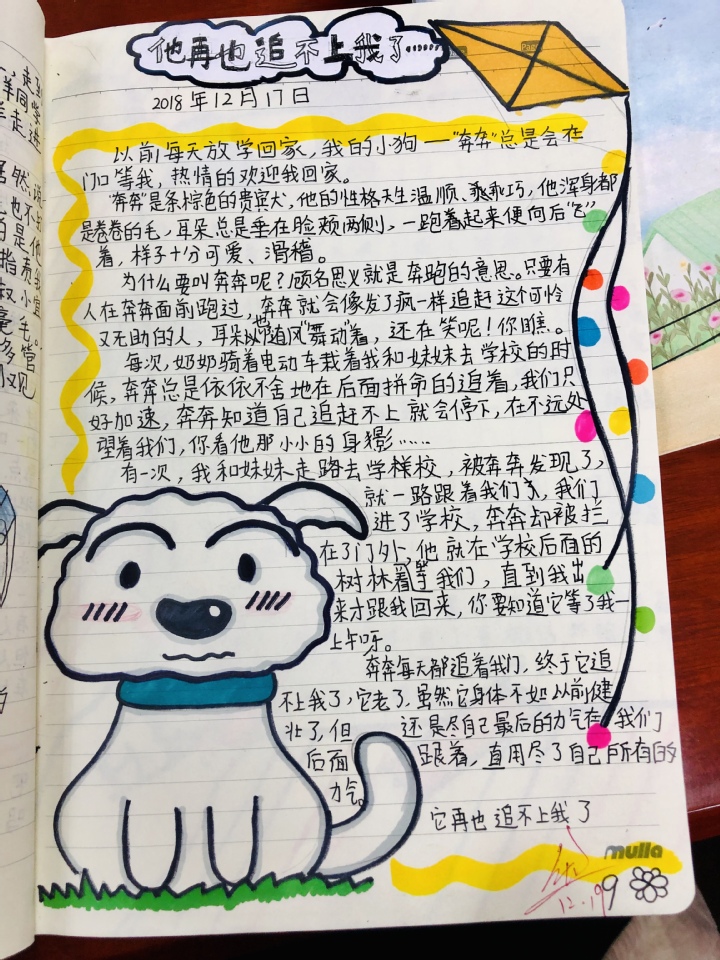 他再也追不上我了……
2018年12月17日
以前每天放学回家，我的小狗——"奔奔"总是会在
门口等我，热情的欢迎我回家。
"奔奔"是条棕色的贵宾犬，他的性格天生温顺、乖巧，他浑身都
是卷卷的毛，耳朵总是垂在脸颊两侧，一跑着起来便向后"飞"
着，样子十分可爱、滑稽。
为什么要叫奔奔呢？顾名思义就是奔跑的意思。只要有
人在奔奔面前跑过，奔奔就会像发了疯一样追赶这个可怜
又无助的人，耳朵也随风"舞动"着，还在笑呢！你瞧。
每次，奶奶骑着电动车载着我和妹妹去学校的时
候，奔奔总是依依不舍地在后面拼命的追着，我们只
好加速，奔奔知道自己追赶不上就会停下，在不远处
望着我们，你看他那小小的身影……
有一次，我和妹妹走路去学校，被奔奔发现了，
就一路跟着我们，我们
进了学校，奔奔却被拦
在了门外，他就在学校后面的
树林着等我们，直到我出
来才跟我回来，你要知道它等了我一
上午呀。
奔奔每天都追着我们，终于它追
不上我了，它老了，虽然它身体不如以前健
壮了，但还是尽自己最后的力气在我们
后面跟着，直用尽了自己所有的
力气。
它再也追不上我了
mulla
12.19
9